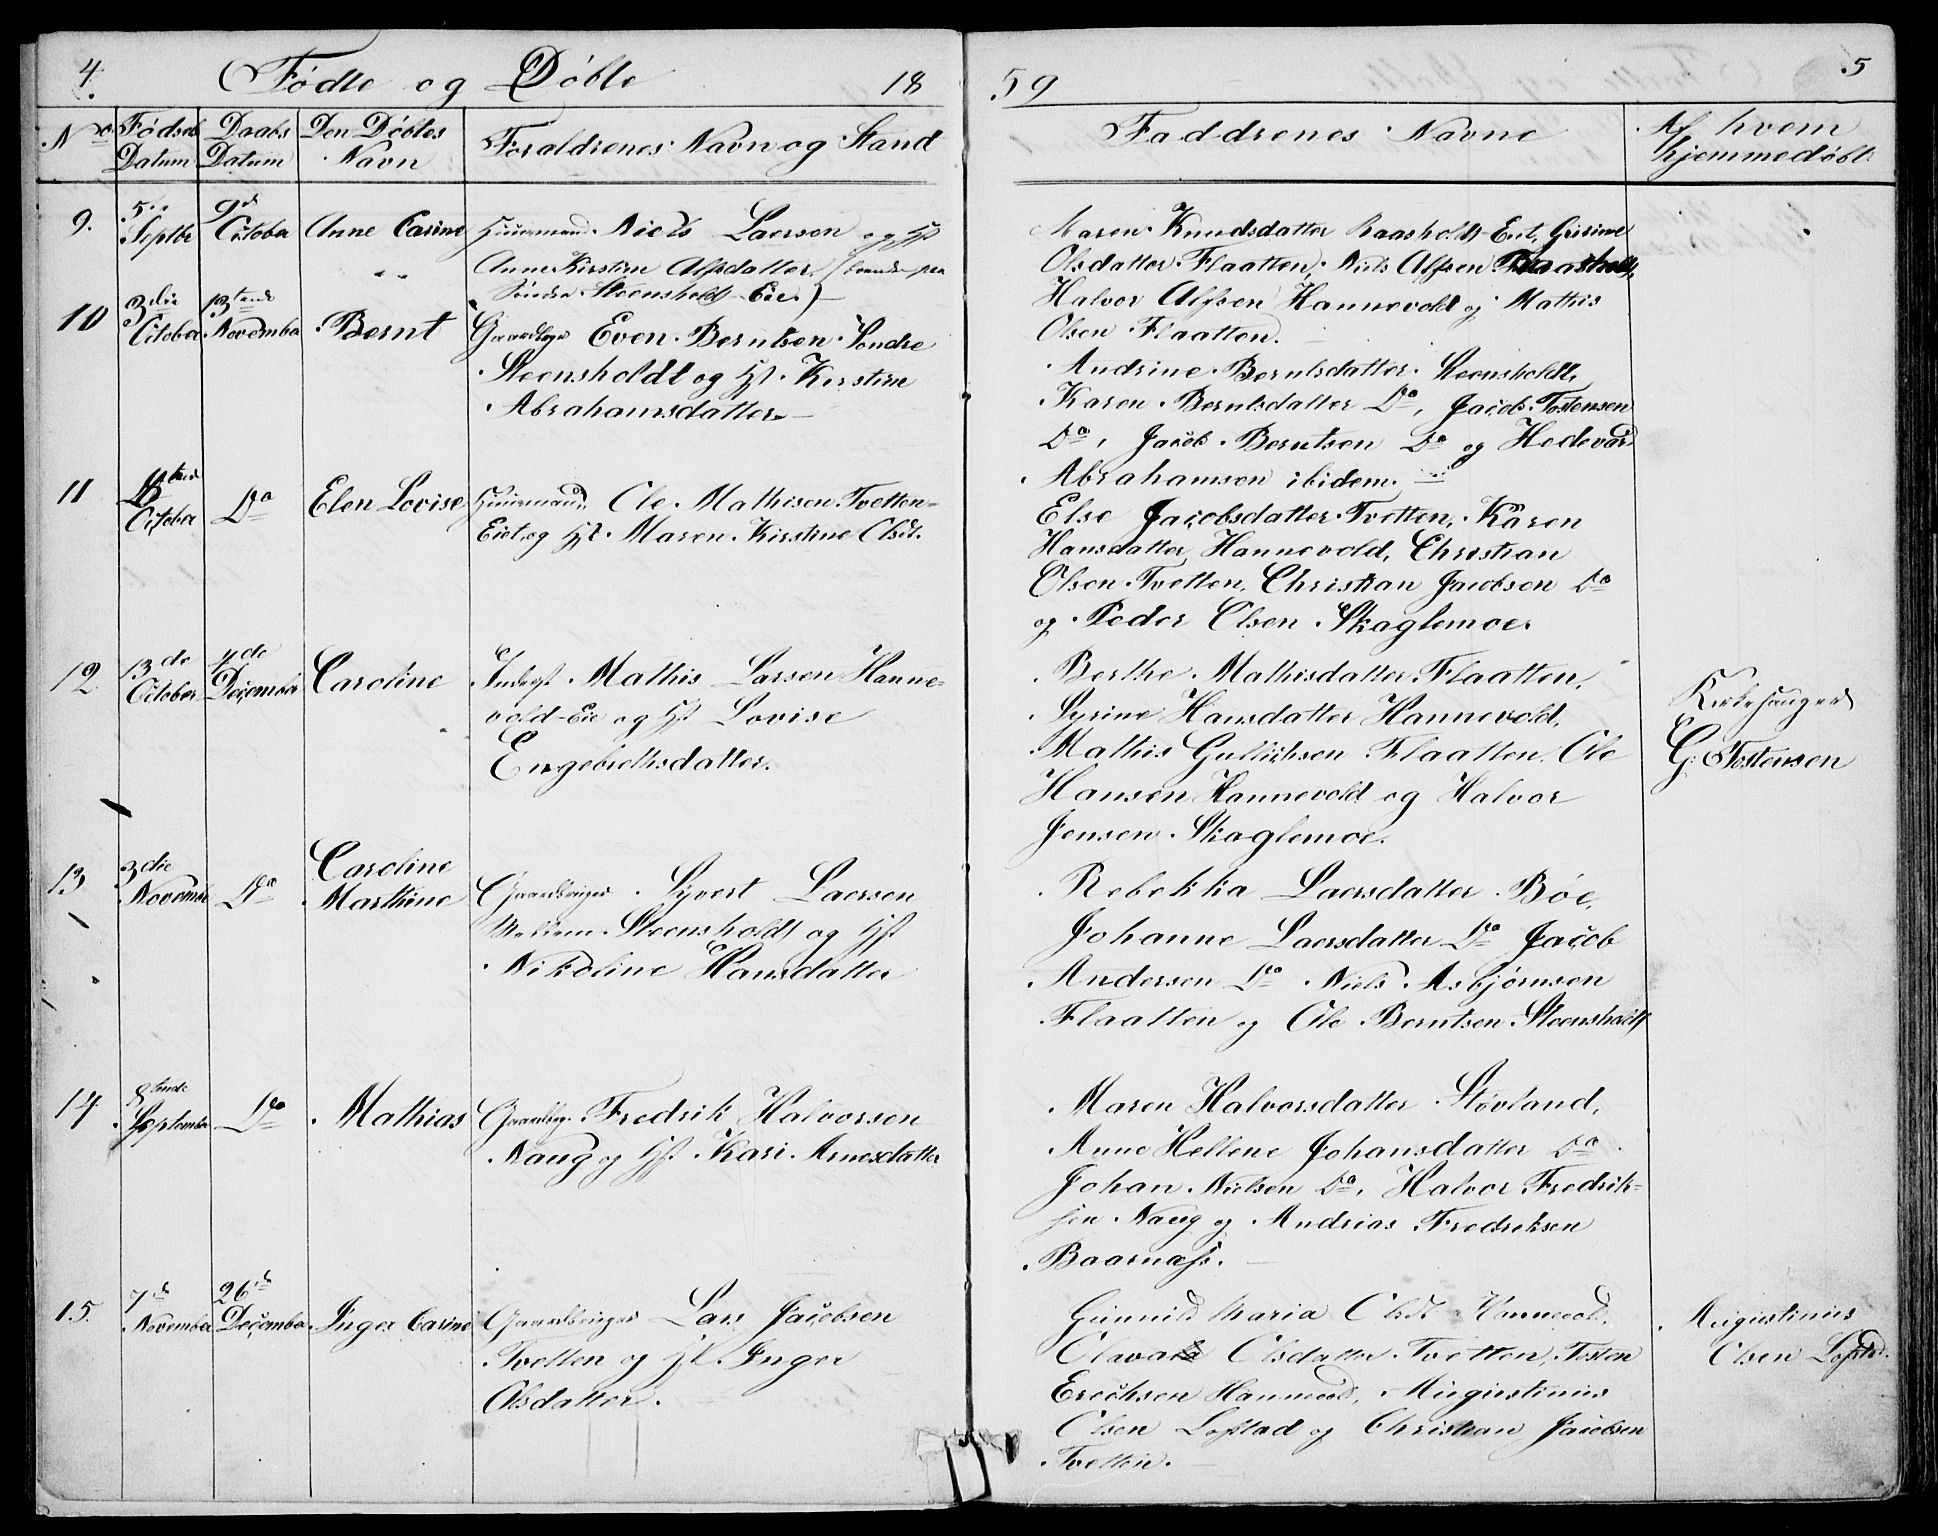 4. Födte og Döbte 18
59 5
No Födsels Datum Daabs Datum Den Döbtes Navn Foraldrenes Navn og Stand
Faddrenes Navne Af hvem hjemmedöbt
9. 5te Septbr 9de October Anne Carine Huusmand Niels Laersen og Hst
Anne Kirstine Alfsdatter, (boende paa
Söndre Steensholdt Eie)
Maren Knudsdatter Raasholdt Eiet,
Olsdatter Flaatten, Niels Alfsen
Halvor Alfsen Hannevold og Mathis
Olsen Flaatten.
10 3die October 13tende November Bernt Gaardbr Even Berntsen Söndre
Steensholdt og Hst. Kirstine
Abrahamsdatter
Andrine Berntsdatter Steensholdt,
Karen Berntsdatter Do, Jacob Tostensen
Do, Jacob Berntsen Do og Hedevard
Abrahamsen ibidem.
11 October Do Elen Lovise Huusmand Ole Mathisen Tvetten-
Eiet, og Hst. Maren Kirstine Olsdt.
Else Jacobsdatter Tvetten, Karen
Hansdatter Hannevold, Christian
Olsen Tvetten, Christian Jacobsen Do
og Peder Olsen Skaglemoe.
12 13de October 4de December Caroline Inderst Mathis Larsen Hanne-
vold-Eie og Hst Lovise
Engebrethsdatter.
Berthe Mathisdatter Flaatten,
Syrine Hansdatter Hannevold,
Mathis Gullichsen Flaatten, Ole
Hansen Hannevold og Halvor
Jensen Skaglemoe.
Kirkesanger
G. Tostensen
13 3die November Do Caroline
Marthine Gaardbruger Syvert Laersen
Mellem Steensholdt og Hst
Nikoline Hansdatter
Rebekka Laersdatter Böe,
Johanne Laersdatter Do Jacob
Andersen Do Niels Asbjörnsen
Flaatten og Ole Berntsen Steensholdt
14 8tende September Do Mathias Gaardbr. Fredrik Halvorsen
Naug og Hst. Kari Arnesdatter
Maren Halvorsdatter Stövland,
Anne Hellene Johansdatter Do
Johan Nielsen Do, Halvor Fredrik-
sen Naug og Andrias Fredriksen
Baarnæss.
15. 7de November 26de December Inger Carine Gaardbruger Lars Jacobsen
Tvetten og Hst. Inger
Olsdatter.
Gunnild Maria Olsdt Hannevold,
Olsdatter Tvetten, Tosten
Erichsen Hannevold, Augustinus
Olsen Lofstad og Christian Jacobsen
Tvetten.
Augustinus
Olsen Lofstad.